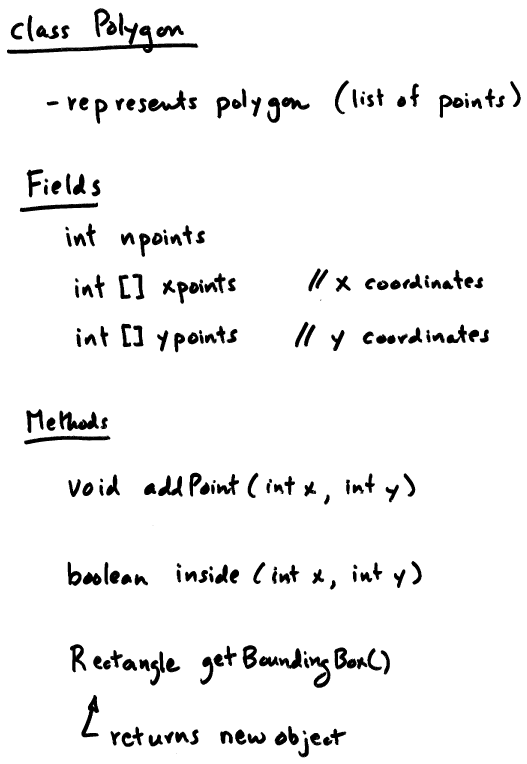 class Polygon
- represents polygon (list of points)
Fields
int npoints
int [] xpoints // x coordinates
int [] ypoints // y coordinates
Methods
void addPoint (int x, int y)
boolean inside (int x, int y)
Rectangle getBoundingBox()
returns new object